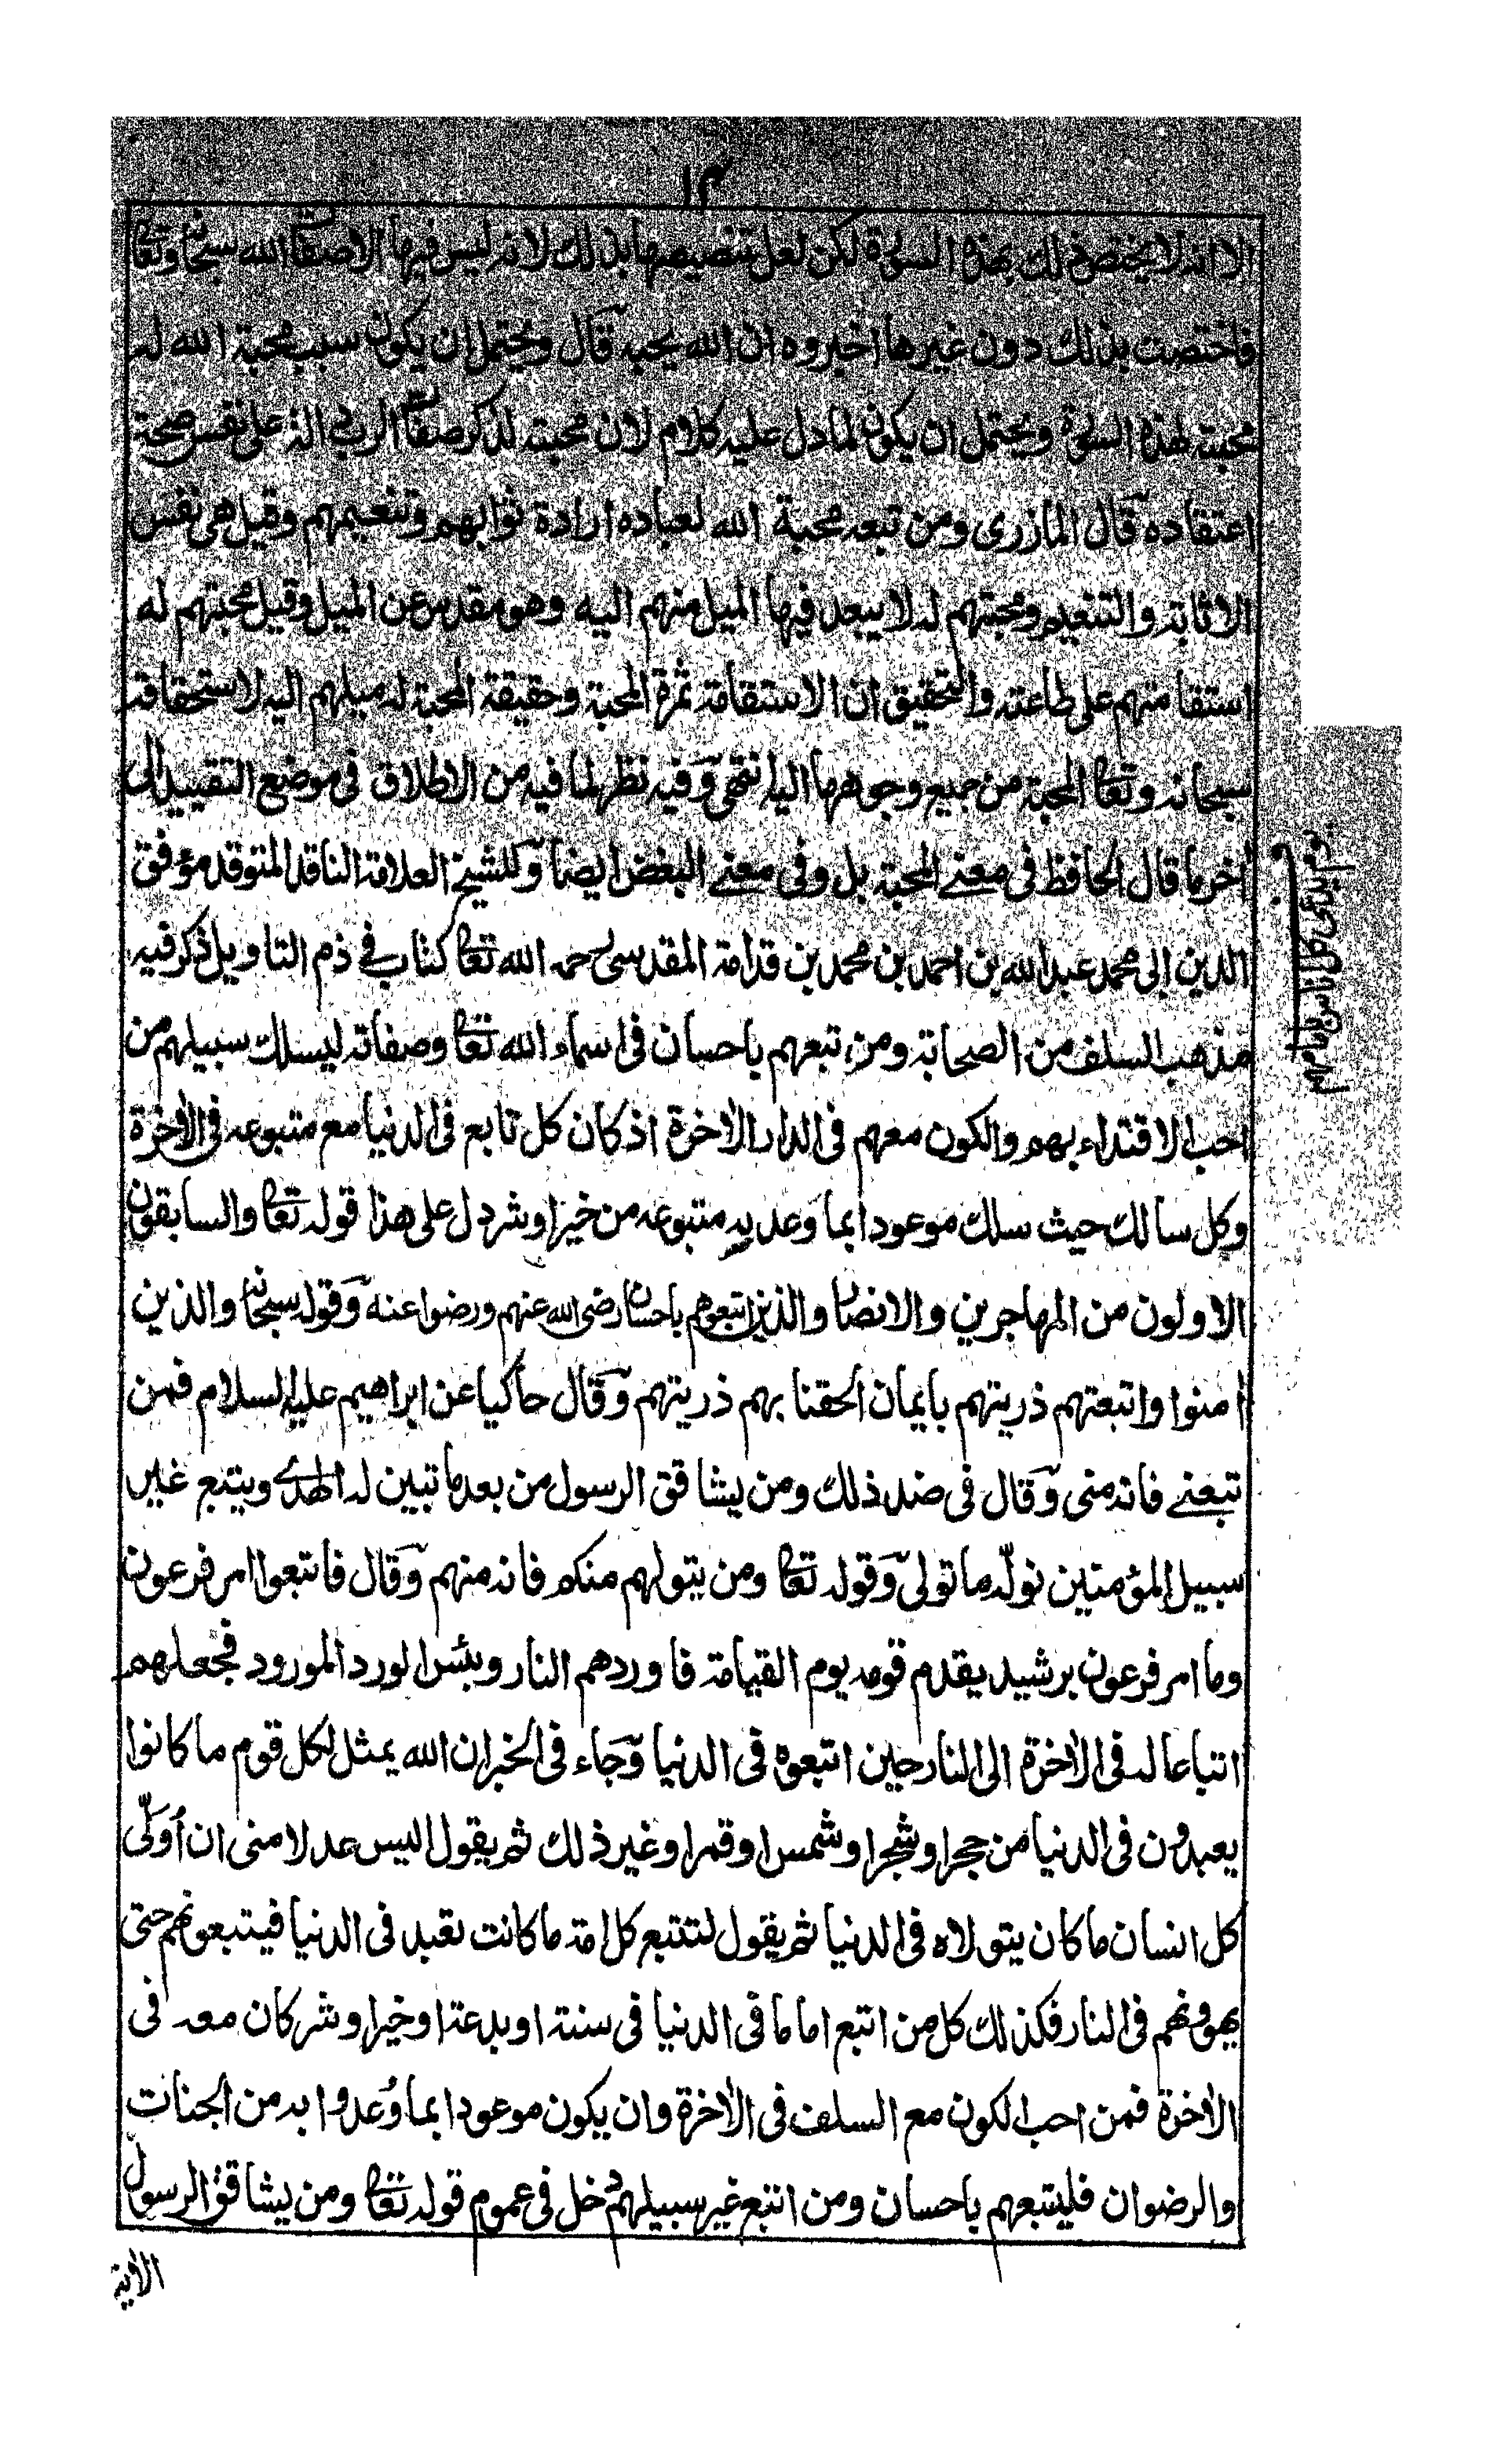 ١٣
الا انه لا يختص ذلك بهذه السورة لكن لعل تخصيصها بذلك لانه ليس فيها الا صفات الله سبحانه وتعا
فاختصت بذلك دون غيرها اخبروه ان الله يحبه قال ويحتمل ان يكون سبب محبة الله له
محبته لهذه السورة ويحتمل ان يكون لما دل عليه كلامه لان محبته لذكر صفات الرب دالة على نفس صحة
اعتقاده قال المازرى ومن تبعه محبة الله لعباده ارادة ثوابهم وتنعيمهم وقيل هى نفس
الاثابة والتنعيم ومحبتهم له لا يبعد فيها الميل منهم اليه وهو مقدس عن الميل وقيل محبتهم له
استقامتهم على طاعته والتحقيق ان الاستقامة ثمرة المحبة وحقيقة المحبة له ميلهم اليه لاستحقاقه
سبحانه وتعا المحبة من جميع وجوهها اليه انتهى وفيه نظر لما فيه من الاطلاق فى موضع التقييد الى
اخر ما قال الحافظ فى معنے المحبة بل وفى معنے البغض ايضا وللشيخ العلامة الناقد المتوقد موفق
الدين ابى محمد عبد الله بن احمد بن محمد بن قدامة المقدسى رحمه الله تعا كتاب فے ذم التاويل ذكر فيه
مذهب السلف من الصحابة ومن تبعهم باحسان فى اسماء الله تعا وصفاته ليسلك سبيلهم من
احب الاقتداء بهم والكون معهم فى الدار الأخرة اذ كان كل تابع فى الدنيا مع متبوعه فى الأخرة
وكل سالك حيث سلك موعودا بما وعد به متبوعه من خير او شر دل على هذا قوله تعا والسابقون
الاولون من المهاجرين والانصار والذين اتبعوهم باحسان رضى الله عنهم ورضوا عنه وقوله سبحانه والذين
أمنوا واتبعتهم ذريتهم بايمان الحقنا بهم ذريتهم وقال حاكيا عن ابراهيم عليه السلام فمن
تبعنے فانه منى وقال فى ضد ذلك ومن يشاقق الرسول من بعد ما تبين له الهدے ويتبع غير
سبيل المؤمنين نولّه ما تولى وقوله تعا ومن يتولهم منكم فانه منهم وقال فاتبعوا امر فرعون
وما امر فرعون برشيد يقدم قومه يوم القيامة فاوردهم النار وبئس الورد المورود فجعلهم
اتباعا له فى الأخرة الى النار حين اتبعوه فى الدنيا وجاء فى الخبر ان الله يمثل لكل قوم ما كانوا
يعبدون فى الدنيا من حجر او شجر او شمس او قمر او غير ذلك ثم يقول اليس عدلا منى ان أُوَلّى
كل انسان ما كان يتولاه فى الدنيا ثم يقول لتتبع كل امة ما كانت تعبد فى الدنيا فيتبعونهم حتى
يهوونهم فى النار فكذلك كل من اتبع اماما فى الدنيا فى سنة او بدعة او خير او شر كان معه فى
الأخرة فمن احب الكون مع السلف فى الأخرة وان يكون موعودا بما وُعدوا به من الجنات
والرضوان فليتبعهم باحسان ومن اتبع غير سبيلهم دخل فى عموم قوله تعا ومن يشاقق الرسول
الأية